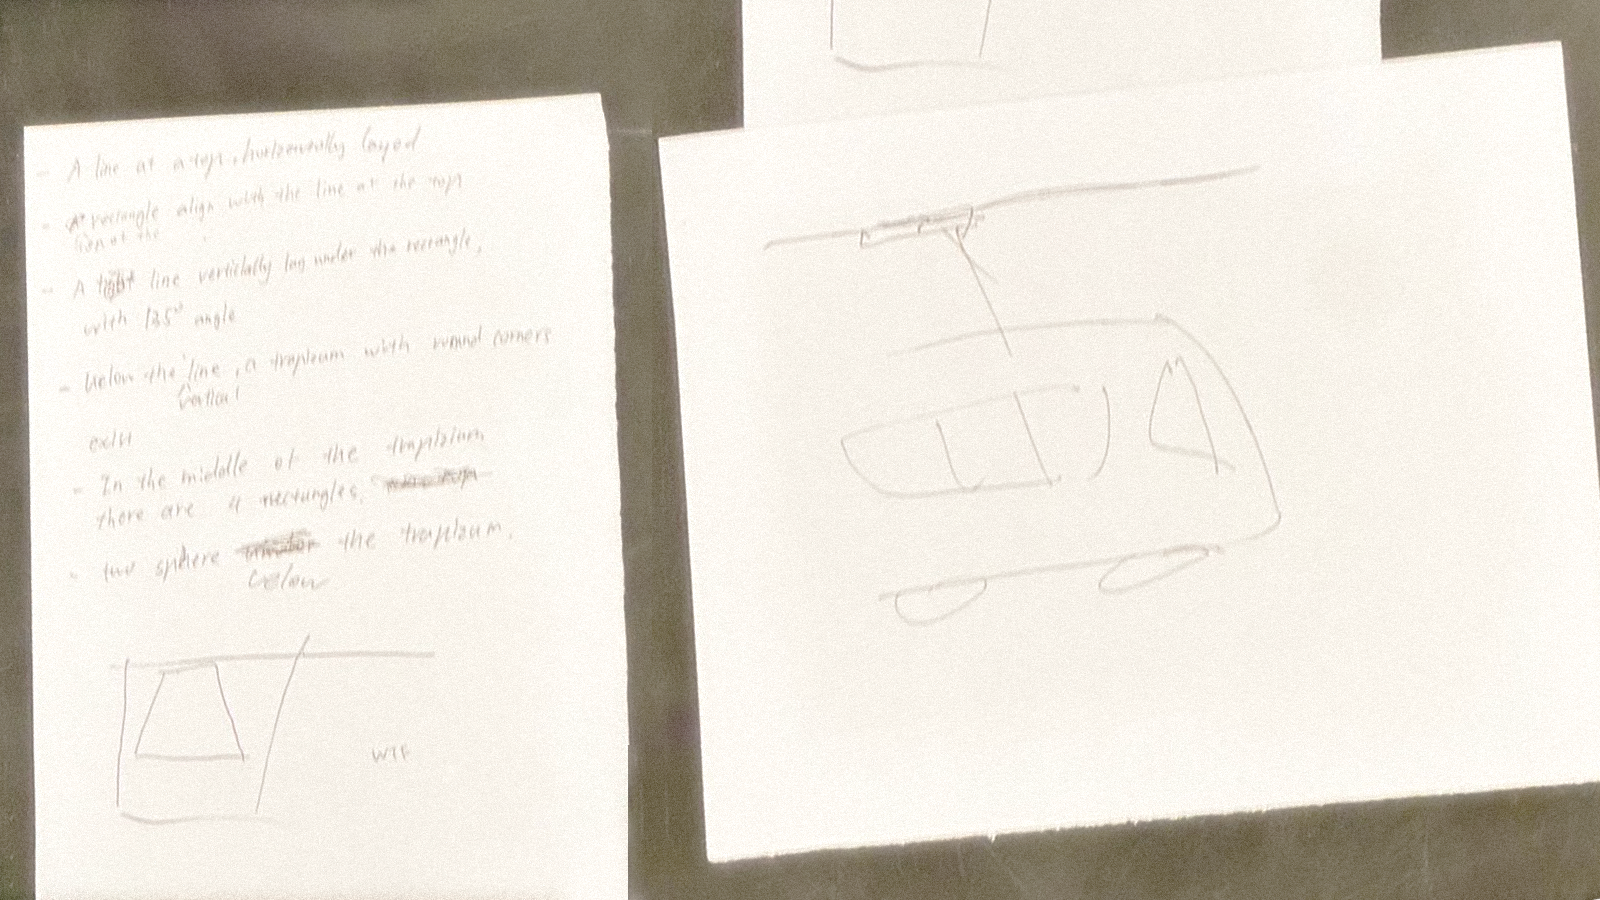 - A line at a top, horizontally layed
- A rectangle align with the line at the top
lign at the
- A line vertically lag under the rectangle,
with 135° angle
- below the line, a trapizum with round corners
vertical
exist
- In the middle of the trapizium
there are 4 rectangles.
- two sphere the trapizum.
below
WTF